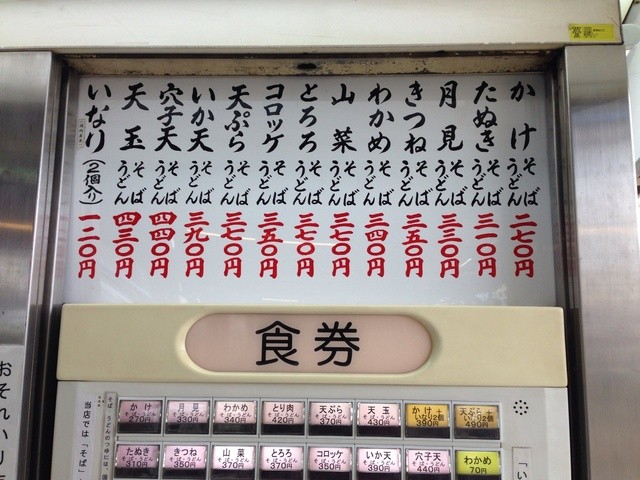 かけ そば うどん 二七〇円
たぬき そば うどん 三一〇円
月見 そば うどん 三三〇円
きつね そば うどん 三五〇円
わかめ そば うどん 三四〇円
山菜 そば うどん 三七〇円
とろろ そば うどん 三七〇円
コロッケ そば うどん 三五〇円
天ぷら そば うどん 三七〇円
いか天 そば うどん 三九〇円
穴子天 そば うどん 四四〇円
天玉 そば うどん 四三〇円
いなり (2個入り) 一二〇円
食券
かけ そば・うどん 270円
月見 そば・うどん 330円
わかめ そば・うどん 340円
とり肉 そば・うどん 420円
天ぷら そば・うどん 370円
天玉 そば・うどん 430円
かけ+いなり2個 390円
天ぷら+いなり2個 490円
たぬき そば・うどん 310円
きつね そば・うどん 350円
山菜 そば・うどん 370円
とろろ そば・うどん 370円
コロッケ そば・うどん 350円
いか天 そば・うどん 390円
穴子天 そば・うどん 440円
わかめ 70円
当店では「そば」
おそれいり
「い